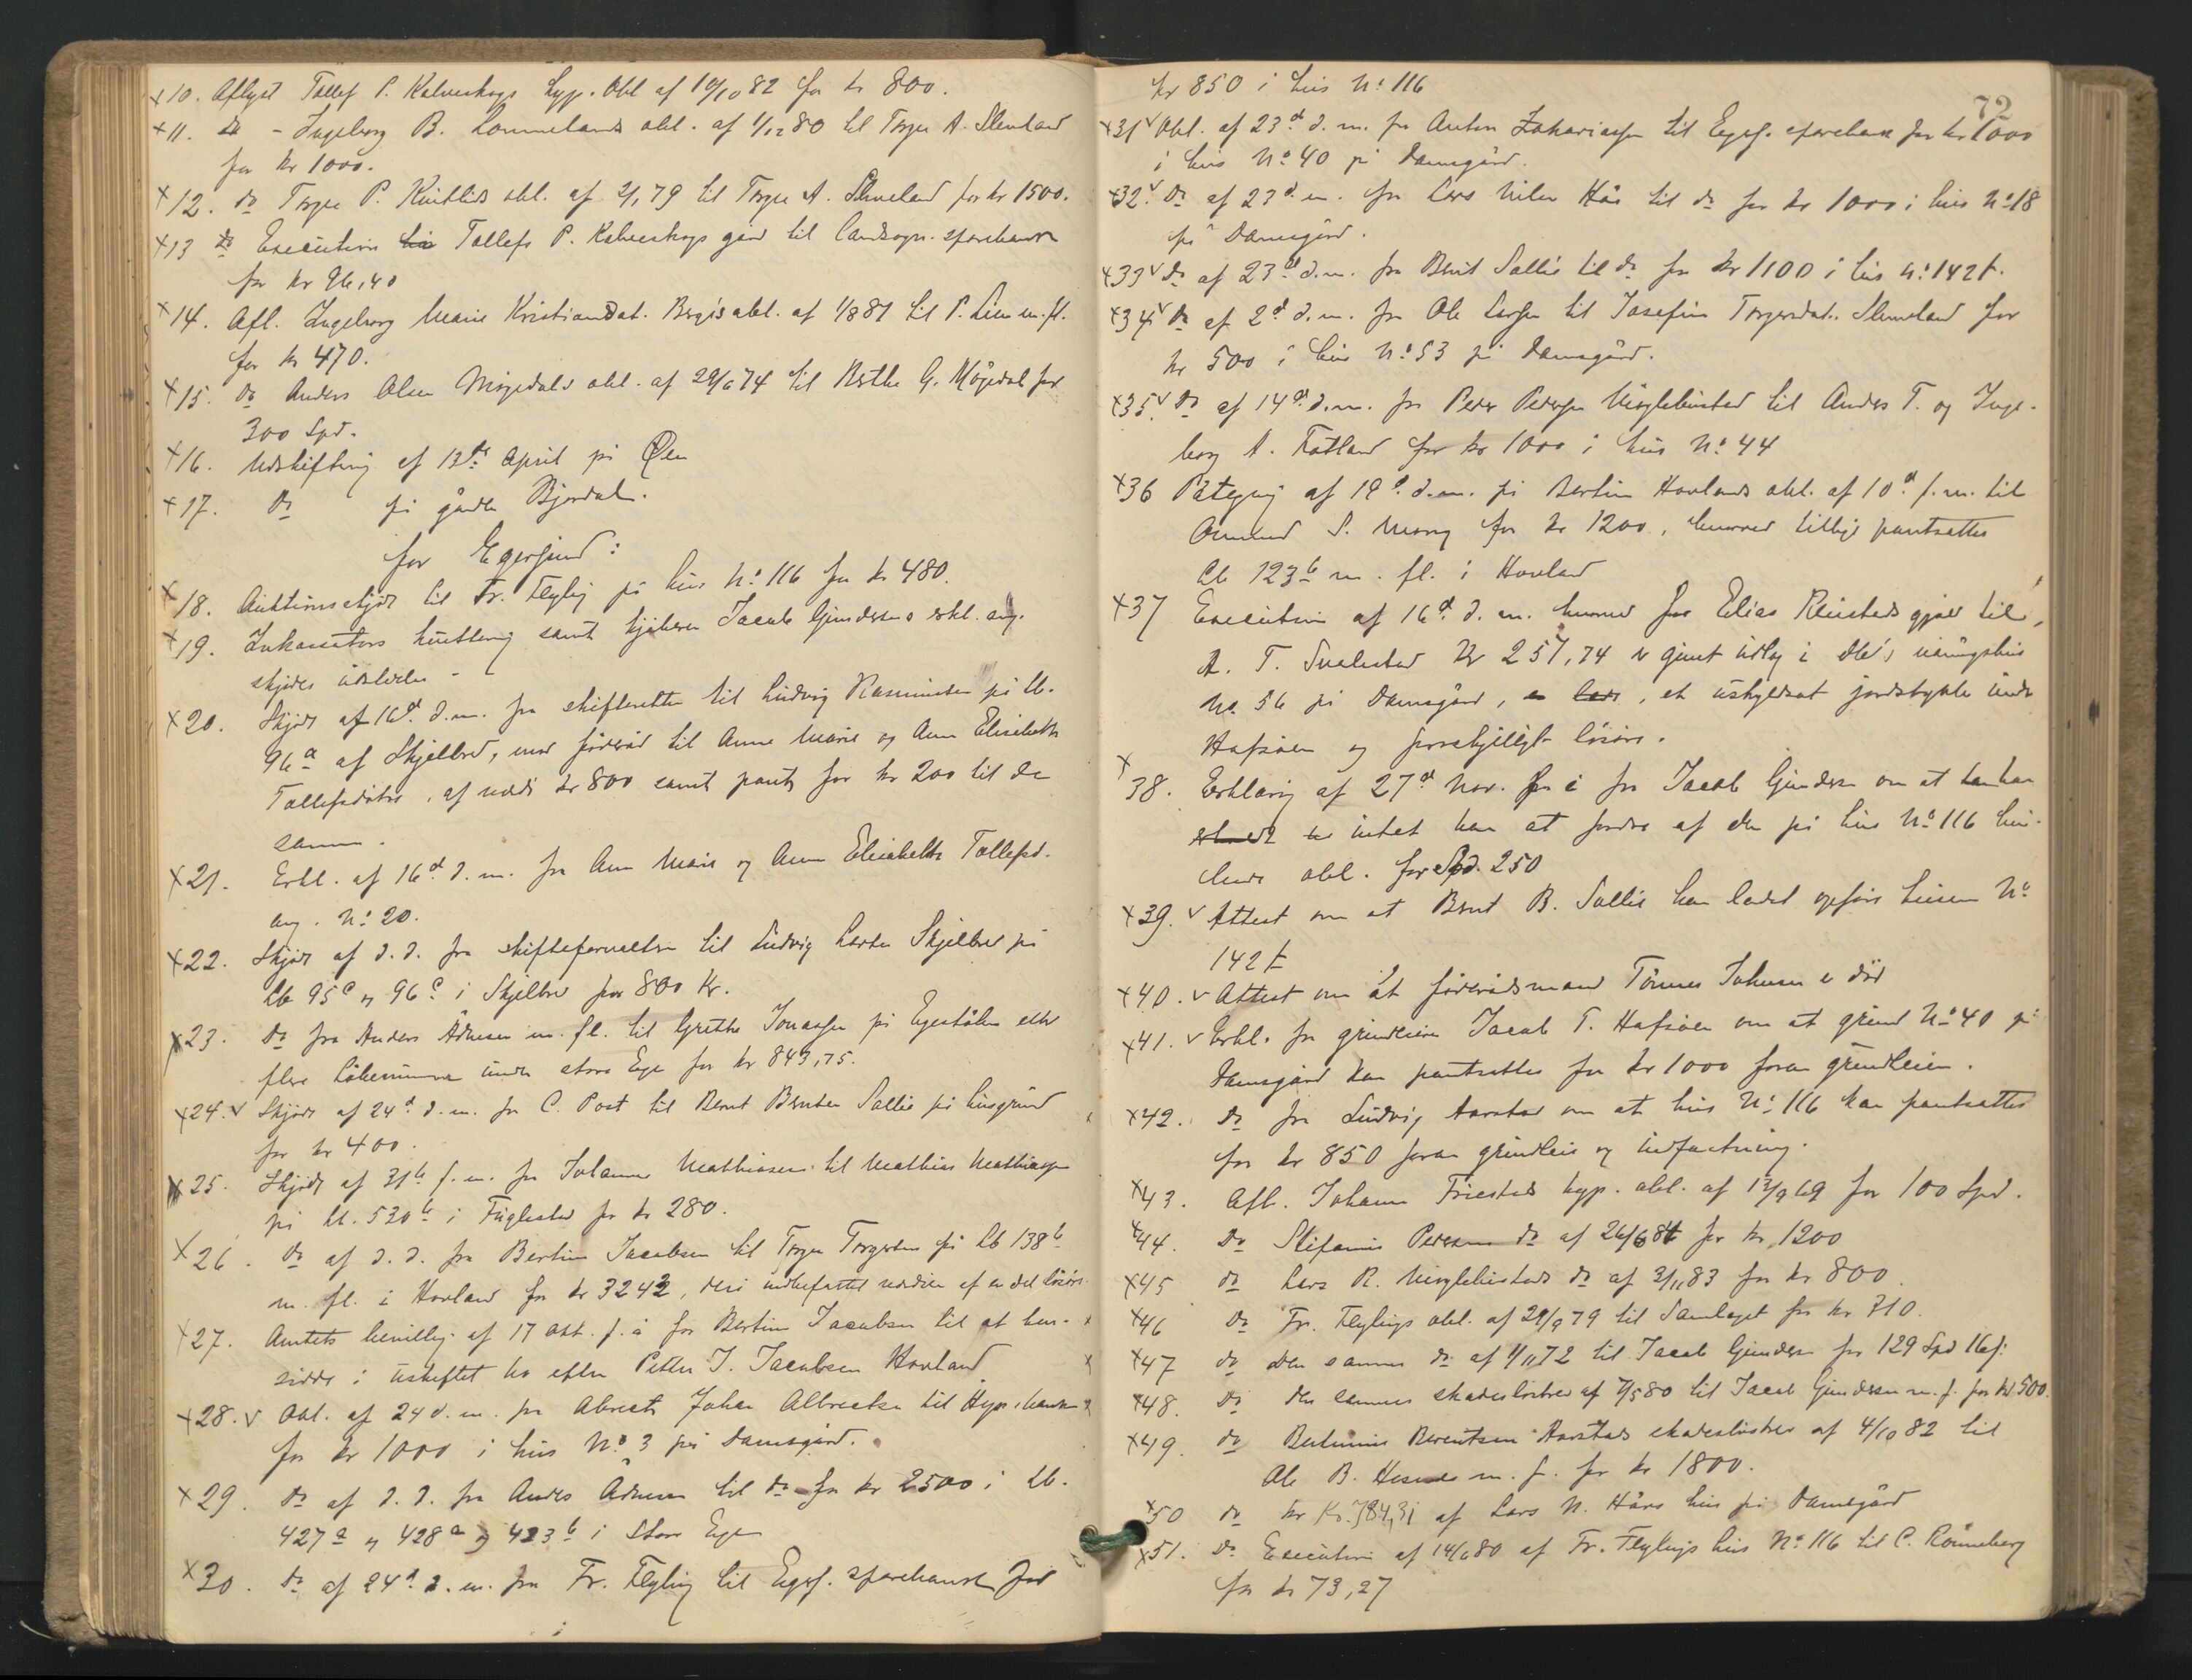 x10. Aflyst Tollef P. Kalveskogs hyp. Obl af 10/10 82 for kr 800.
x11. do - Ingeborg B. Lommelands obl. af 1/12 80 til Torger A. Slemeland
for kr 1000.
x12. do Torger P. Kvitlids obl. af 2/1 79 til Torger A. Slemeland for kr 1500.
x13 do Execution Tollefs P. Kalveskogs gård til Landsogn. sparebank
for kr 96,40
x14. Afl. Ingeborg Marie Kristiansdat. Bergs obl. af 1/8 81 til P. Lien m. fl.
for kr 470.
x15. do Anders Olsen Mögedals obl. af 29/6 74 til Berthe G. Mögedal for
300 Spd.
x16. Udskiftning af 13de April på Øen
x17. do på gården Bjordal.
for Egersund:
x18. Auktionsskjöde til Fr. Flyling på hus No 116 for kr 480.
x19. Inkassators kvittering samt kjöberen Jacob Gundersens erkl. ang.
skjödes udstedelse -
x20. Skjöde af 16d d. m. fra skifteretten til Ludvig Rasmussen på Lb.
96a af Skjelbred, mod föderåd til Anne Marie og Ane Elisabeth
Tollefsdötre, af værdi kr 800 samt pant for kr 200 til de
samme.
x21. Erkl. af 16d d. m. fra Ane Marie og Anne Elisabeth Tollefsd.
ang. No 20.
x22. Skjöde af d. d. fra skifteforvalteren til Ludvig Larsen Skjelbred på
Lb 95c og 96c i Skjelbred for 800 Kr.
x23. do fra Anders Ådnesen m. fl. til Grethe Jonassen på Egestölen eller
flere Löbenumre under store Ege for kr 843,75.
x24. v Skjöde af 24d d. m. fra C. Post til Bernt Berntsen Sællie på husgrund
for kr 400.
x25. Skjöde af 31te f. m. fra Johannes Mathiasen til Mathias Mathiassen
på Lb. 530b i Fuglestad for kr 280.
x26. do af d. d. fra Bertine Jacobsen til Torger Torgersen på Lb 138b
m. fl. i Hovland for kr 3242, deri indbefattet værdien af en del lösöre.
x27. Amtets bevilling af 17 Okt. f. å for Bertine Jacobsen til at hen-
sidde i uskiftet bo efter Petter J. Jacobsen Hovland
x28. v Obl. af 24 d. m. fra Abrecht Johan Albrectsen til Hyp. banken
for kr 1000 i hus No 3 på Damsgård.
x29. do af d. d. fra Anders Adnesen til do for kr 2500 i Lb.
427a og 428a og 423b i Store Ege
x30. do af 24d d. m. fra Fr. Flyling til Egers. sparebank for
72
kr 850 i hus No 116
x31 v Obl. af 23d d. m. fra Anton Zakariassen til Egers. sparebank for kr 1000
i hus No 40 på Damsgård.
x32. v Do af 23d m. fra Lars Nilsen Hår til do for kr 1000 i hus No 18
på Damsgård.
x33 v do af 23d d. m. fra Bernt Sællie til do for kr 1100 i hus No 142 t.
x34 v do af 2d d. m. fra Ole Larsen til Josefine Torgersdat. Slemeland for
kr 500 i hus No 53 på Damsgård.
x35. v do af 14d d. m. fra Peder Pedersen Möglebustad til Anders T. og Inge-
borg A. Fotland for kr 1000 i hus No 44
x36 Påtegning af 19d d. m. på Bertine Hovlands obl. af 10d f. m. til
Omund S. Mong for kr 1200, hvorved tillige pantsættes
Lb 123b m. fl. i Hovland
x37 Execution af 16d d. m. hvorved for Elias Reistads gjæld til
A. T. Svalestad kr 257,74 er gjort udlæg i dts's våningshus
No 56 på Damsgård, et uskyldsat jordstykke under
Hafsöen og forskjelligt lösöre.
x
38. Erklæring af 27d Nov. f. å fra Jacob Gundersen om at han
intet har at fordre af den på hus No 116 hvi-
lende obl. for Spd. 250
x39. v Attest om at Bernt B. Sællie har ladet opföre husen No
142 t
x40. v Attest om at föderådsmand Tönnes Johnsen er död
x41. v Erkl. fra grundeier Jacob T. Hafsöen om at grund No 40 på
Damsgård kan pantsættes for kr 1000 foran grundleien.
x42. do fra Ludvig Aarstad om at hus No 116 kan pantsættes
for kr 850 foran grundleie og indfæstning.
x43. Afl. Johan Friestads hyp. obl. af 12/9 69 for 100 Spd.
x44. Do Stefanus Pedersens do af 26/6 84 for kr 1200
x45 do Lars R. Möglebustads do af 3/11 83 for kr 800
x46 Do Fr. Flylings obl. af 29/9 79 til Samlaget for kr 710.
x47 do den sammes do af 4/11 72 til Jacob Gundersen for 129 Spd 16 s.
x48. Do den sammes skadeslösbrev af 7/5 80 til Jacob Gundersen m. f. for kr 500.
x49. do Bertinius Berentsen Aarstads skadeslösbrev af 4/10 82 til
Ole B. Hesnes m. f. for kr 1800.
x50 do kr Kr. 784,31 af Lars N. Hårs hus på Damsgård
x51. Do Execution af 14/6 80 af Fr. Flylings hus No 116 til C. Rönneberg
for kr 73,27